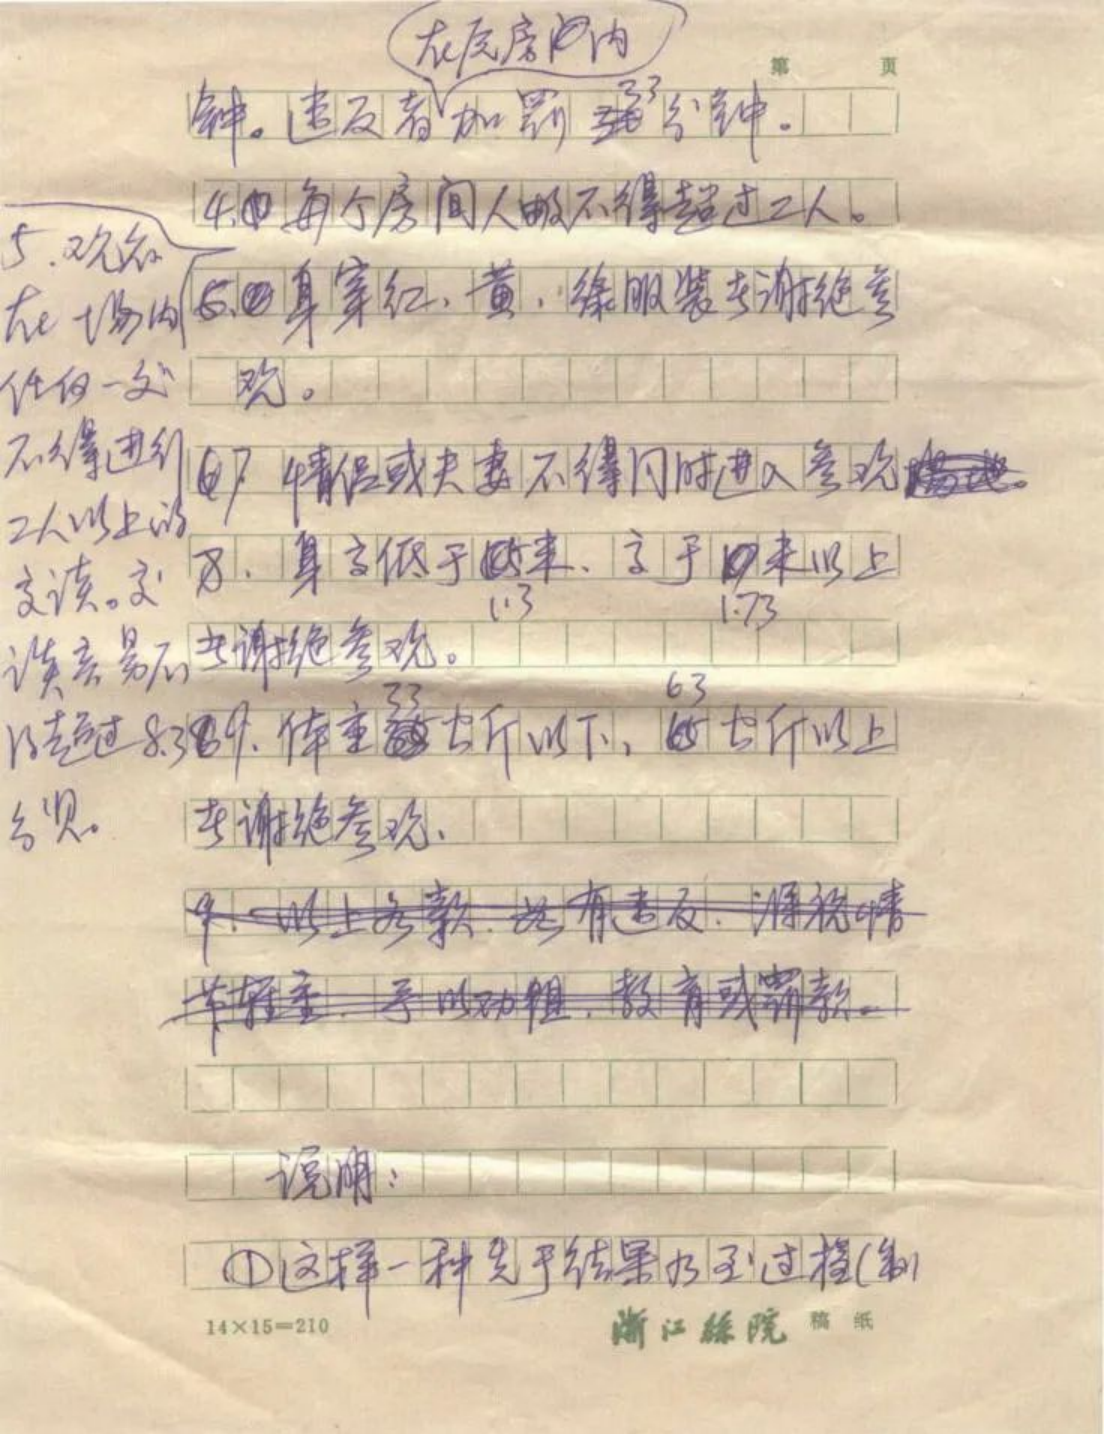 在原房间内
第 页
钟。违反者加罚33分钟。
4. 每个房间人数不得超过二人。
5. 观众
在场内
任何一处
不得进行
二人以上的
交谈。交
谈亦不
得超过8.3
分贝。
6. 身穿红、黄、绿服装者谢绝参
观。
7. 情侣或夫妻不得同时进入参观
8. 身高低于1.3米、高于1.73米以上
者谢绝参观。
9. 体重33公斤以下，63公斤以上
者谢绝参观.
9. 以上各款.如有违反.须视情
节轻重.予以劝阻.教育或罚款。
说明：
①这样一种先于结果乃至过程(制
14×15=210
浙江 院 稿纸